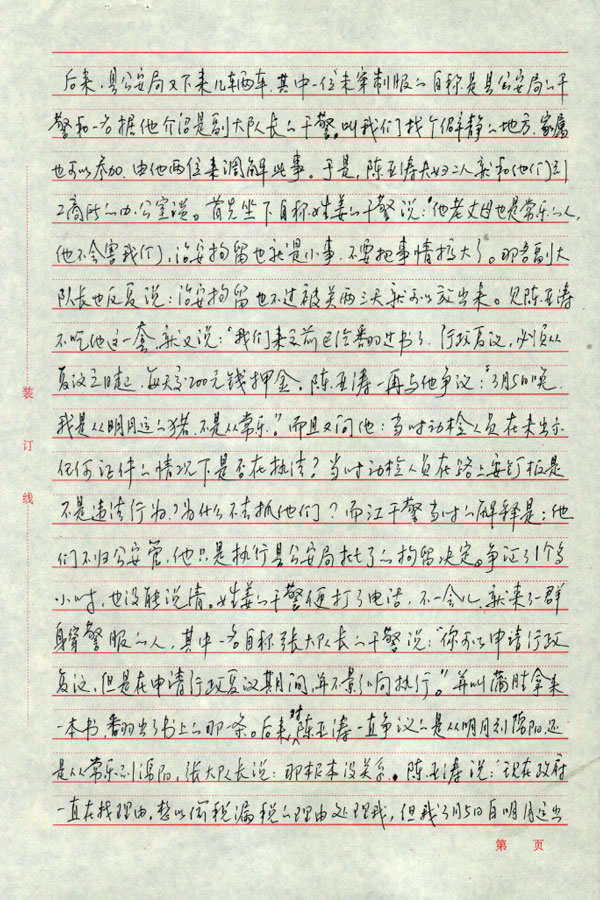 后来,县公安局又下来几辆车,其中一位未穿制服的自称是县公安局的干
警和一名据他介绍是副大队长的干警。叫我们找个僻静的地方,家属
也可以参加,由他两位来调解此事。于是,陈亚涛夫妇二人就和他们到
工商所的办公室谈。首先坐下自称姓姜的干警说:“他老丈母也是常乐的人,
他不会害我们,治安拘留也就是小事,不要把事情搞大了。那名副大
队长也反复说:治安拘留也不过被关两三天就可以放出来。见陈亚涛
不吃他这一套,就又说:“我们来之前已给看的过书了,行政复议,必须从
复议之日起,每天交200元钱押金。陈亚涛一再与他争议:“3月5日晚,
我是从明月运的猪,不是从常乐。”而且又问他:当时动检人员在未出示
任何证件的情况下是否在执法?当时动检人员在路上安钉板是
不是违法行为?为什么不去抓他们?而江干警当时的解释是:他
们不归公安管,他只是执行县公安局批了的拘留决定。争论了1个多
小时,也没能说清。姓姜的干警便打了电话,不一会儿,就来了一群
身穿警服的人,其中一名自称张大队长的干警说:“你可以申请行政
复议,但是在申请行政复议期间,并不影响执行。”并叫蒲胜拿来
一本书,番到出了书上的那一条。后来对陈亚涛一直争议的是从明月到隆阳,还
是从常乐到 阳,张大队长说:那根本没关系。陈亚涛说:“现在政府
一直在找理由,想以偷税漏税的理由处理我,但我3月5日自明月运出
装订线
第 页